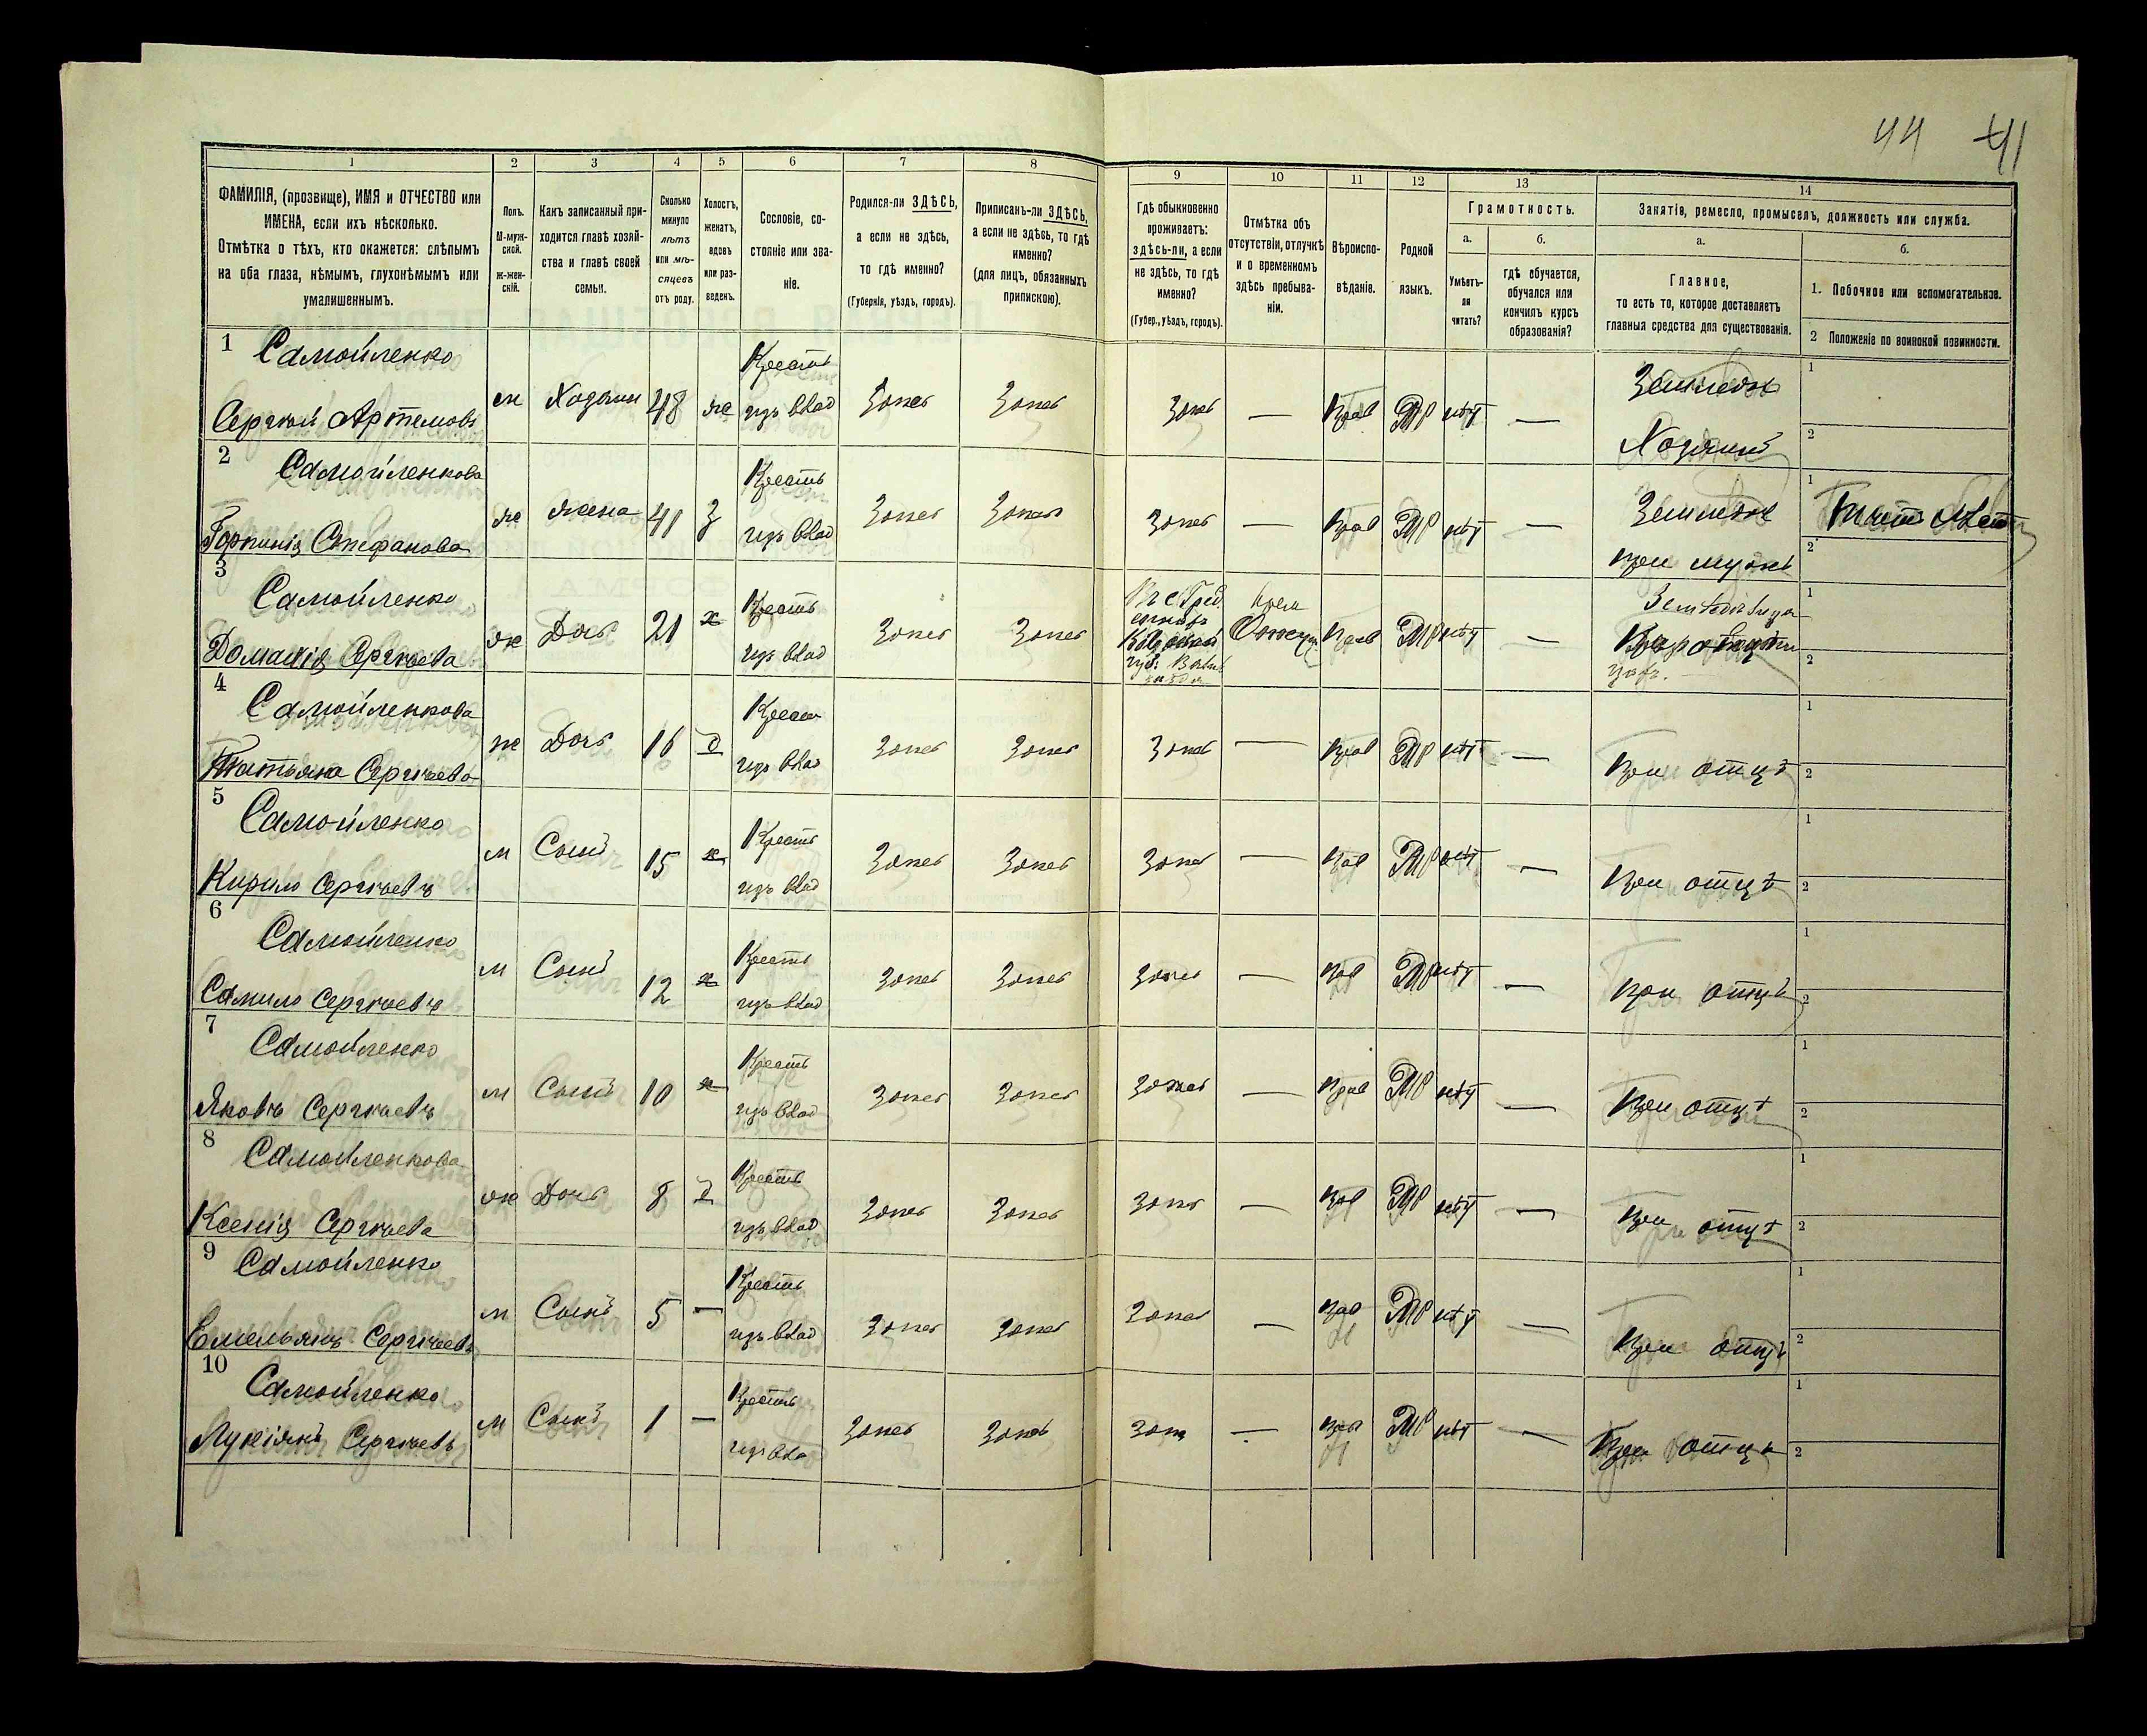 44 41
1 2 3 4 5 6 7 8 9 10 11 12 13 14
ФАМИЛІЯ, (прозвище), ИМЯ и ОТЧЕСТВО или
ИМЕНА, если ихъ нѣсколько.
Отмѣтка о тѣхъ, кто окажется: слѣпымъ
на оба глаза, нѣмымъ, глухонѣмымъ или
умалишеннымъ.
Полъ.
М-муж-
ской.
ж-жен-
скій.
Какъ записанный при-
ходится главѣ хозяй-
ства и главѣ своей
семьи.
Сколько
минуло
лѣтъ
или мѣ-
сяцевъ
отъ роду.
Холостъ,
женатъ,
вдовъ
или раз-
веденъ.
Сословіе, со-
стояніе или зва-
ніе.
Родился-ли ЗДѢСЬ,
а если не здѣсь,
то гдѣ именно?
(Губернія, уѣздъ, городъ).
Приписанъ-ли ЗДѢСЬ,
а если не здѣсь, то гдѣ
именно?
(для лицъ, обязанныхъ
припискою).
Гдѣ обыкновенно
проживаетъ:
здѣсь-ли, а если
не здѣсь, то гдѣ
именно?
(Губер., уѣздъ, городъ).
Отмѣтка объ
отсутствіи, отлучкѣ
и о временномъ
здѣсь пребыва-
ніи.
Вѣроиспо-
вѣданіе.
Родной
языкъ.
Грамотность.
а.
Умѣетъ-
ли
читать?
б.
гдѣ обучается,
обучался или
кончилъ курсъ
образованія?
Занятіе, ремесло, промыселъ, должность или служба.
а.
Главное,
то есть то, которое доставляетъ
главныя средства для существованія.
б.
1. Побочное или вспомогательное.
2 Положеніе по воинской повинности.
1 Самойленко Крестъ 1
Сергѣй Артемовъ м Хозяин 48 же изъ влад Здѣсь Здѣсь Здѣсь — Прав МР нѣтъ — Земледѣл
Хозяинъ 2
2 Самойленкова Крестъ 1
Горпинія Стефанова же жена 41 з изъ влад Здѣсь Здѣсь Здѣсь — Прав МР нѣтъ — Земледѣл
при мужѣ 2
3 Самойленко Крестъ 1
Доманія Сергѣева ж Дочь 21 х изъ влад Здѣсь Здѣсь МР нѣтъ — 2
4 Самойленкова Крест 1
Татьяна Сергѣева ж Дочь 16 д изъ влад Здѣсь Здѣсь Здѣсь — Прав МР нѣтъ — При отцѣ 2
5 Самойленко Крестъ 1
Кирило Сергѣевъ м Сынъ 15 х изъ влад Здѣсь Здѣсь Здѣсь — Прав МР нѣтъ — При отцѣ 2
6 Самойленко Крестъ 1
Самило Сергѣевъ м Сынъ 12 х изъ влад Здѣсь Здѣсь Здѣсь — Прав МР нѣтъ — При отцѣ 2
7 Самойленко Крестъ 1
Яковъ Сергѣевъ м Сынъ 10 х изъ влад Здѣсь Здѣсь Здѣсь — Прав МР нѣтъ — При отцѣ 2
8 Самойленкова Крестъ 1
Ксенія Сергѣева ж Дочь 8 д изъ влад Здѣсь Здѣсь Здѣсь — Прав МР нѣтъ — При отцѣ 2
9 Самойленко Крестъ 1
Емельянъ Сергѣевъ м Сынъ 5 — изъ влад Здѣсь Здѣсь Здѣсь — Прав МР нѣтъ — При отцѣ 2
10 Самойленко Крестъ 1
Лукіянъ Сергѣевъ м Сынъ 1 — изъ влад Здѣсь Здѣсь Здѣсь — Прав МР нѣтъ — При отцѣ 2